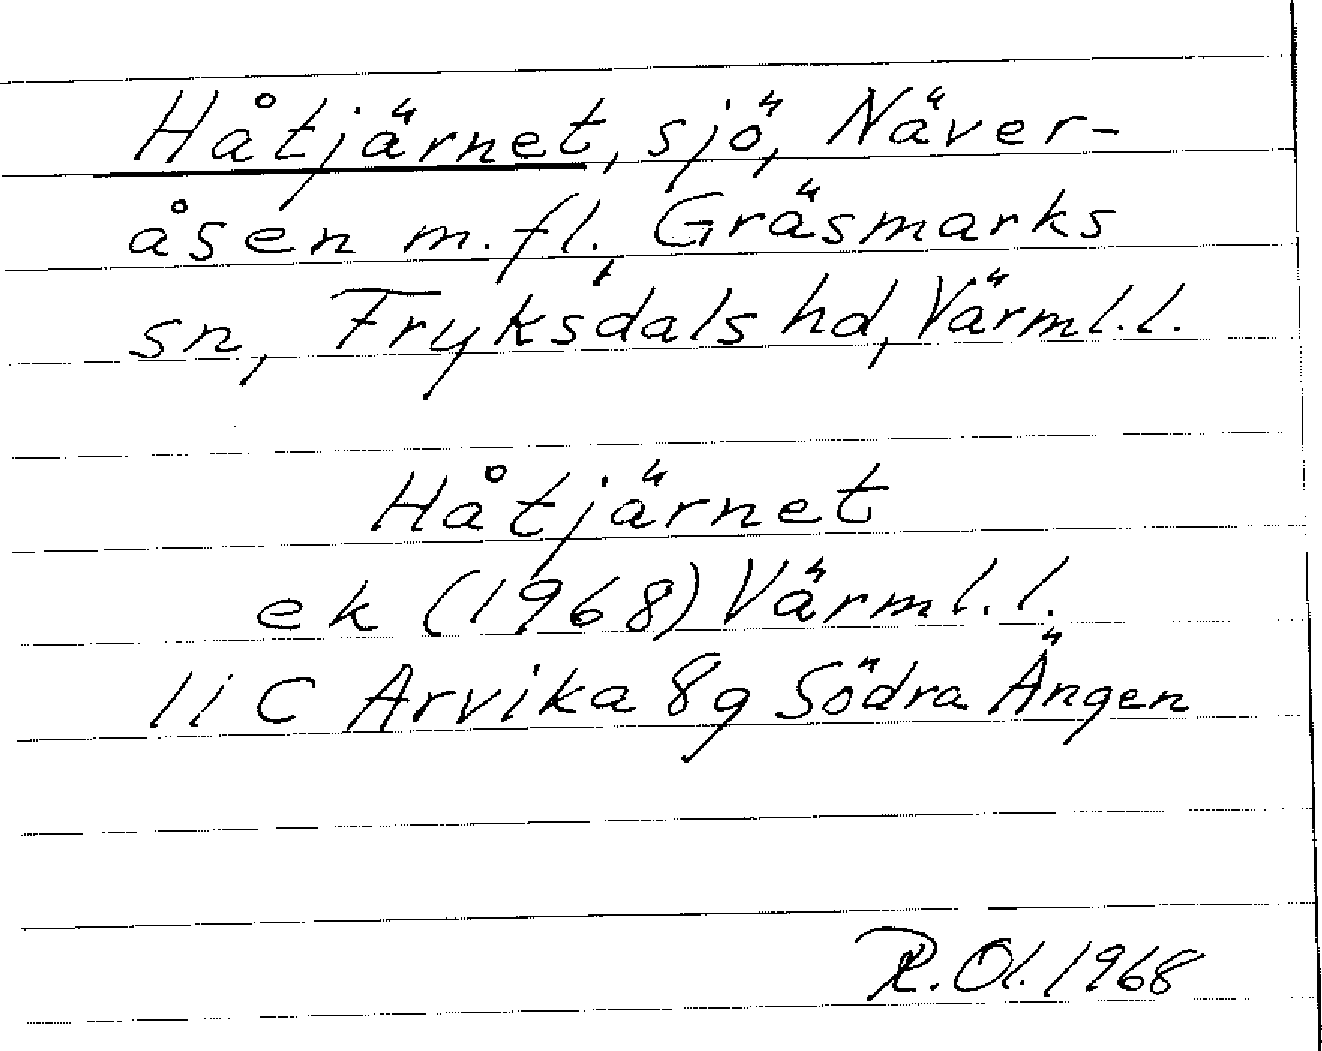 Håtjärnet, sjö, Näver-
åsen m.fl., Gräsmarks
sn, Fryksdals hd, Värml.l.
Håtjärnet
ek (1968) Värml.l.
11 C Arvika 8g Södra Ängen
R.Ol. 1968